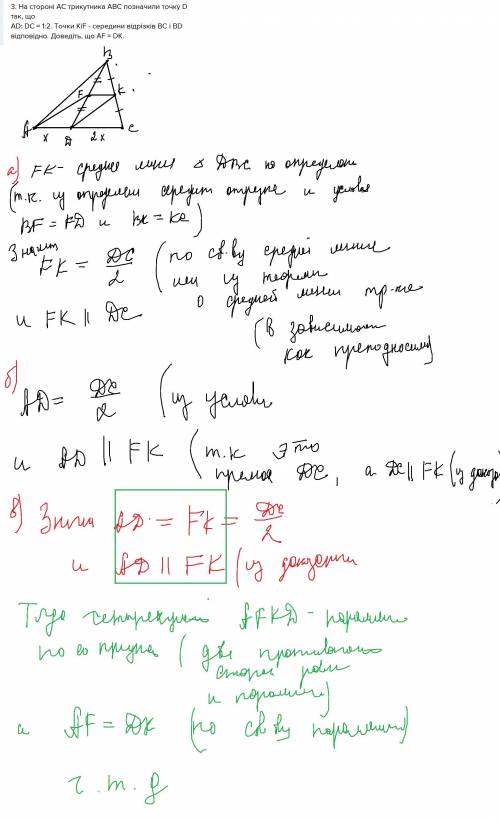 3. На стороні АС трикутника АВС позначили точку D
так, що
AD: DC = 1:2. Точки КіF - середини відрізків ВС і BD
відповідно. Доведіть, що AF = DK.
B
F
K
A
x
D
2x
C
а) FK - средняя линия △ DBC по определен
(т.к. из определен середин отрезка и условия
BF = FD и BK = KC)
Значит
FK = DC/2 (по св.ву средней линии
или из теоремы
о средней линии тр-ка
и FK || DC
(в зависимости
как преподносили)
б)
AD = DC/2 (из услови
и AD || FK (т.к это
прямая DC, а DC || FK (из доказ
в) Значит AD = FK = DC/2
и AD || FK (из доказан
Тогда четырехугольн AFKD - паралел
по его призна (две противополо
сторон равн
и паралел)
а AF = DK (по св ву паралел)
ч.т.д